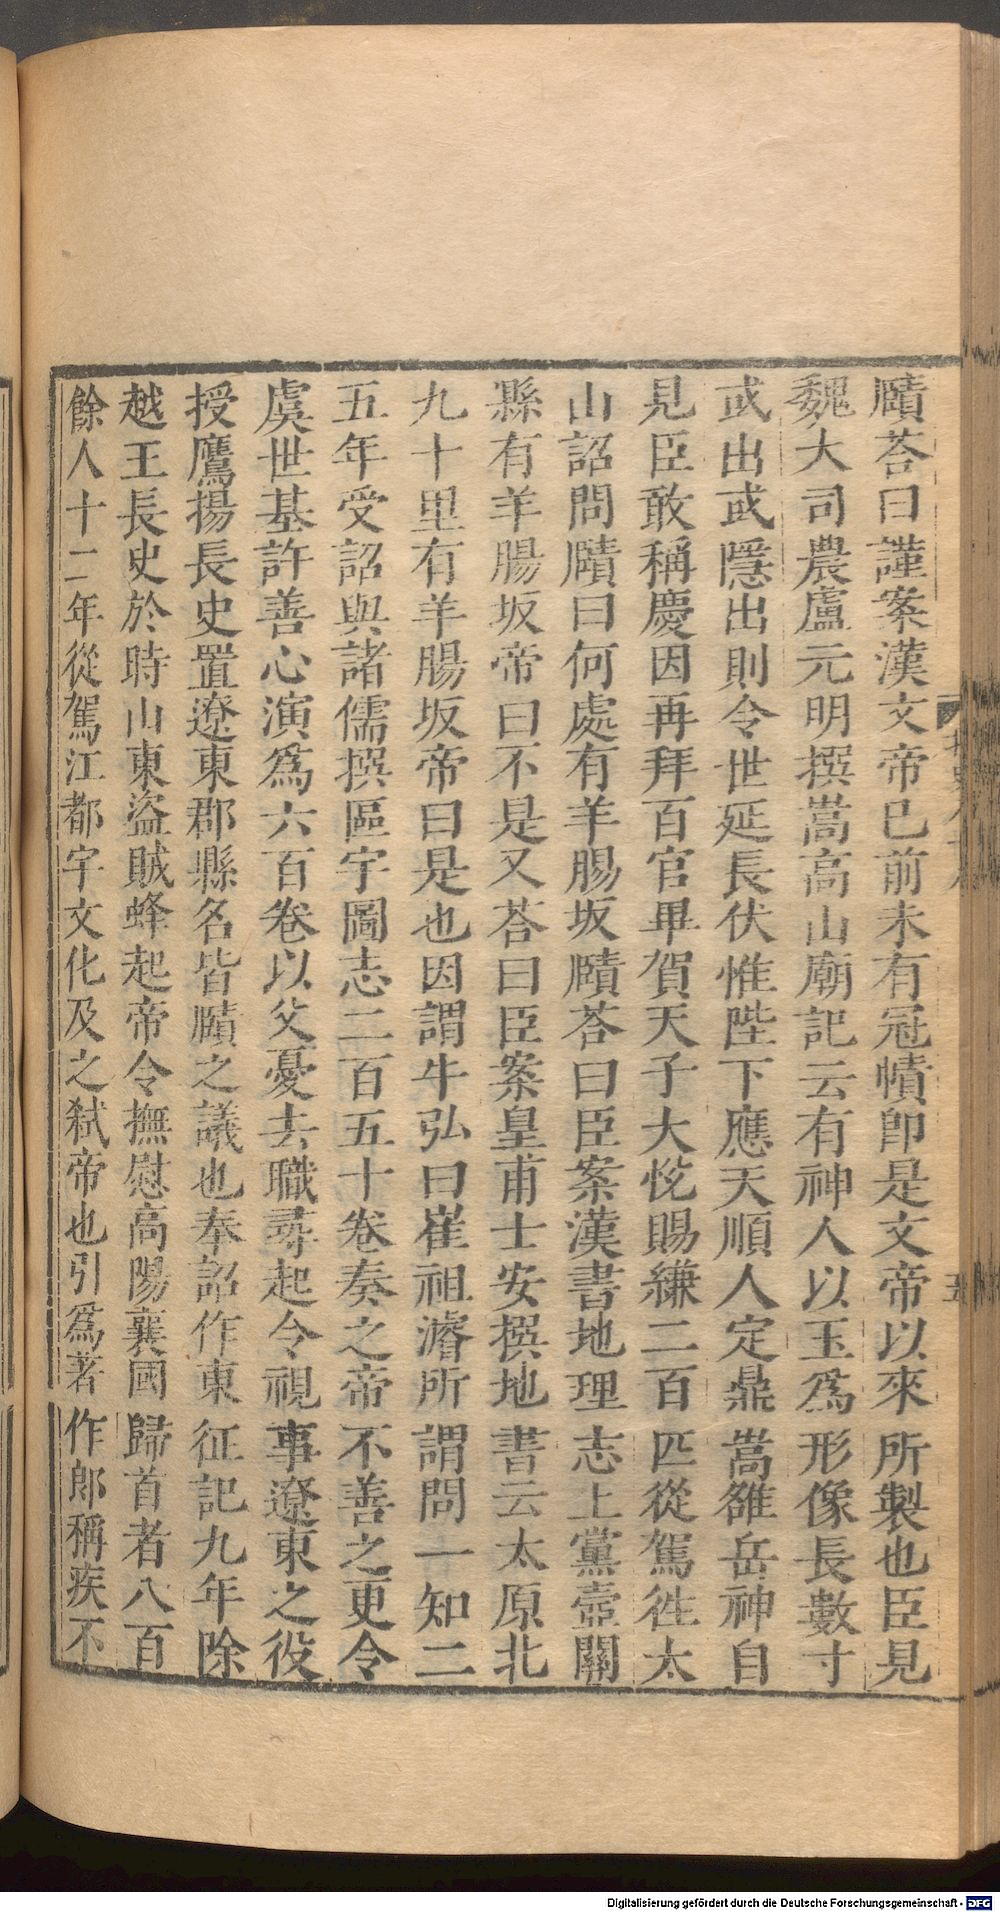 賾荅曰謹案漢文帝已前未有冠幘卽是文帝以來所製也臣見
魏大司農盧元明撰嵩高山廟記云有神人以玉爲形像長數寸
或出或隱出則令世延長伏惟陛下應天順人定鼎嵩雒岳神自
見臣敢稱慶因再拜百官畢賀天子大悅賜縑二百匹從駕往太
山詔問賾曰何處有羊腸坂賾荅曰臣案漢書地理志上黨壺關
縣有羊腸坂帝曰不是又荅曰臣案皇甫士安撰地書云太原北
九十里有羊腸坂帝曰是也因謂牛弘曰崔祖濬所謂問一知二
五年受詔與諸儒撰區宇圖志二百五十卷奏之帝不善之更令
虞世基許善心演爲六百卷以父憂去職尋起令視事遼東之役
授鷹揚長史置遼東郡縣名皆賾之議也奉詔作東征記九年除
越王長史於時山東盜賊蜂起帝令撫慰高陽襄國歸首者八百
餘人十二年從駕江都宇文化及之弒帝也引爲著作郎稱疾不
Digitalisierung gefördert durch die Deutsche Forschungsgemeinschaft - DFG